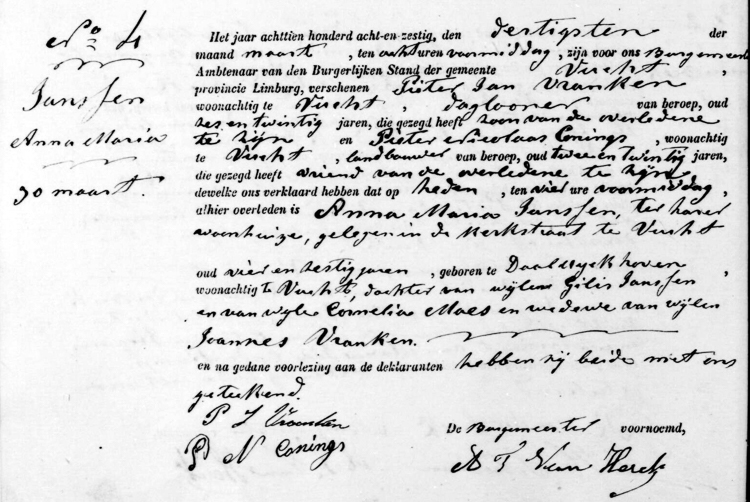 No 4
Janssen
Anna Maria
30 maart.
Het jaar achttien honderd acht-en-zestig, den dertigsten der
maand maart, ten acht uren voormiddag, zijn voor ons Burgemeester
Ambtenaar van den Burgerlijken Stand der gemeente Vucht,
provincie Limburg, verschenen Pieter Jan Vranken
woonachtig te Vucht, daglooner van beroep, oud
zes en twintig jaren, die gezegd heeft zoon van de overledene
te zijn en Pieter Nicolaas Conings, woonachtig
te Vucht, landbouwer van beroep, oud twee en twintig jaren,
die gezegd heeft vriend van de overledene te zijn
dewelke ons verklaard hebben dat op heden, ten vier ure voormiddag,
alhier overleden is Anna Maria Janssen, ter harer
woonhuize, gelegen in de Kerkstraat te Vucht
oud vier en zestig jaren, geboren te Daalwyckhoven
woonachtig te Vucht, dochter van wijlen Gilis Janssen
en van wijlen Cornelia Maes en weduwe van wijlen
Joannes Vranken.
en na gedane voorlezing aan de deklaranten hebben zij beide met ons
geteekend.
P J Vranken
De Burgemeester voornoemd,
P N Conings